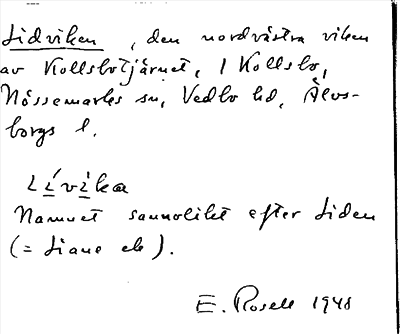 Lidviken, den nordvästra viken
av Kollsbotjärnet, i Kollsbo,
Nössemarks sn, Vedbo hd, Älvs-
borgs l.
Lívika
Namnet sannolikt efter Liden
(= Liane ek).
E. Rosell 1948